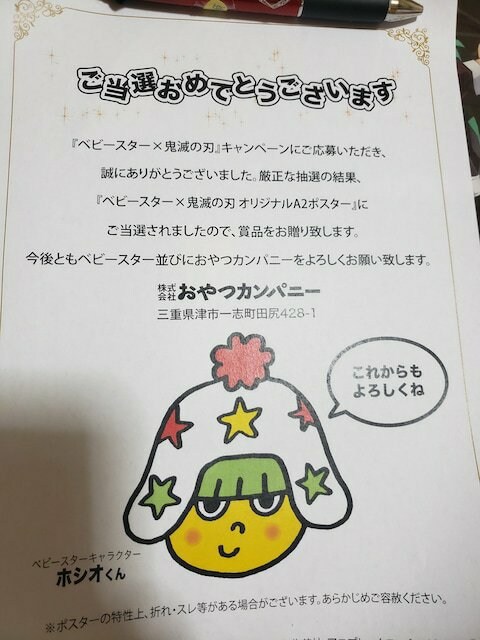 ご当選おめでとうございます
『ベビースター×鬼滅の刃』キャンペーンにご応募いただき、
誠にありがとうございました。厳正な抽選の結果、
『ベビースター×鬼滅の刃 オリジナルA2ポスター』に
ご当選されましたので、賞品をお贈り致します。
今後ともベビースター並びにおやつカンパニーをよろしくお願い致します。
株式会社おやつカンパニー
三重県津市一志町田尻428-1
これからも
よろしくね
ベビースターキャラクター
ホシオくん
※ポスターの特性上、折れ・スレ等がある場合がございます。あらかじめご容赦ください。